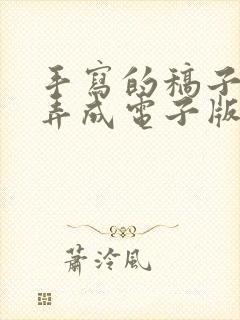 手寫的稿子
弄成電子版
蕭泠風